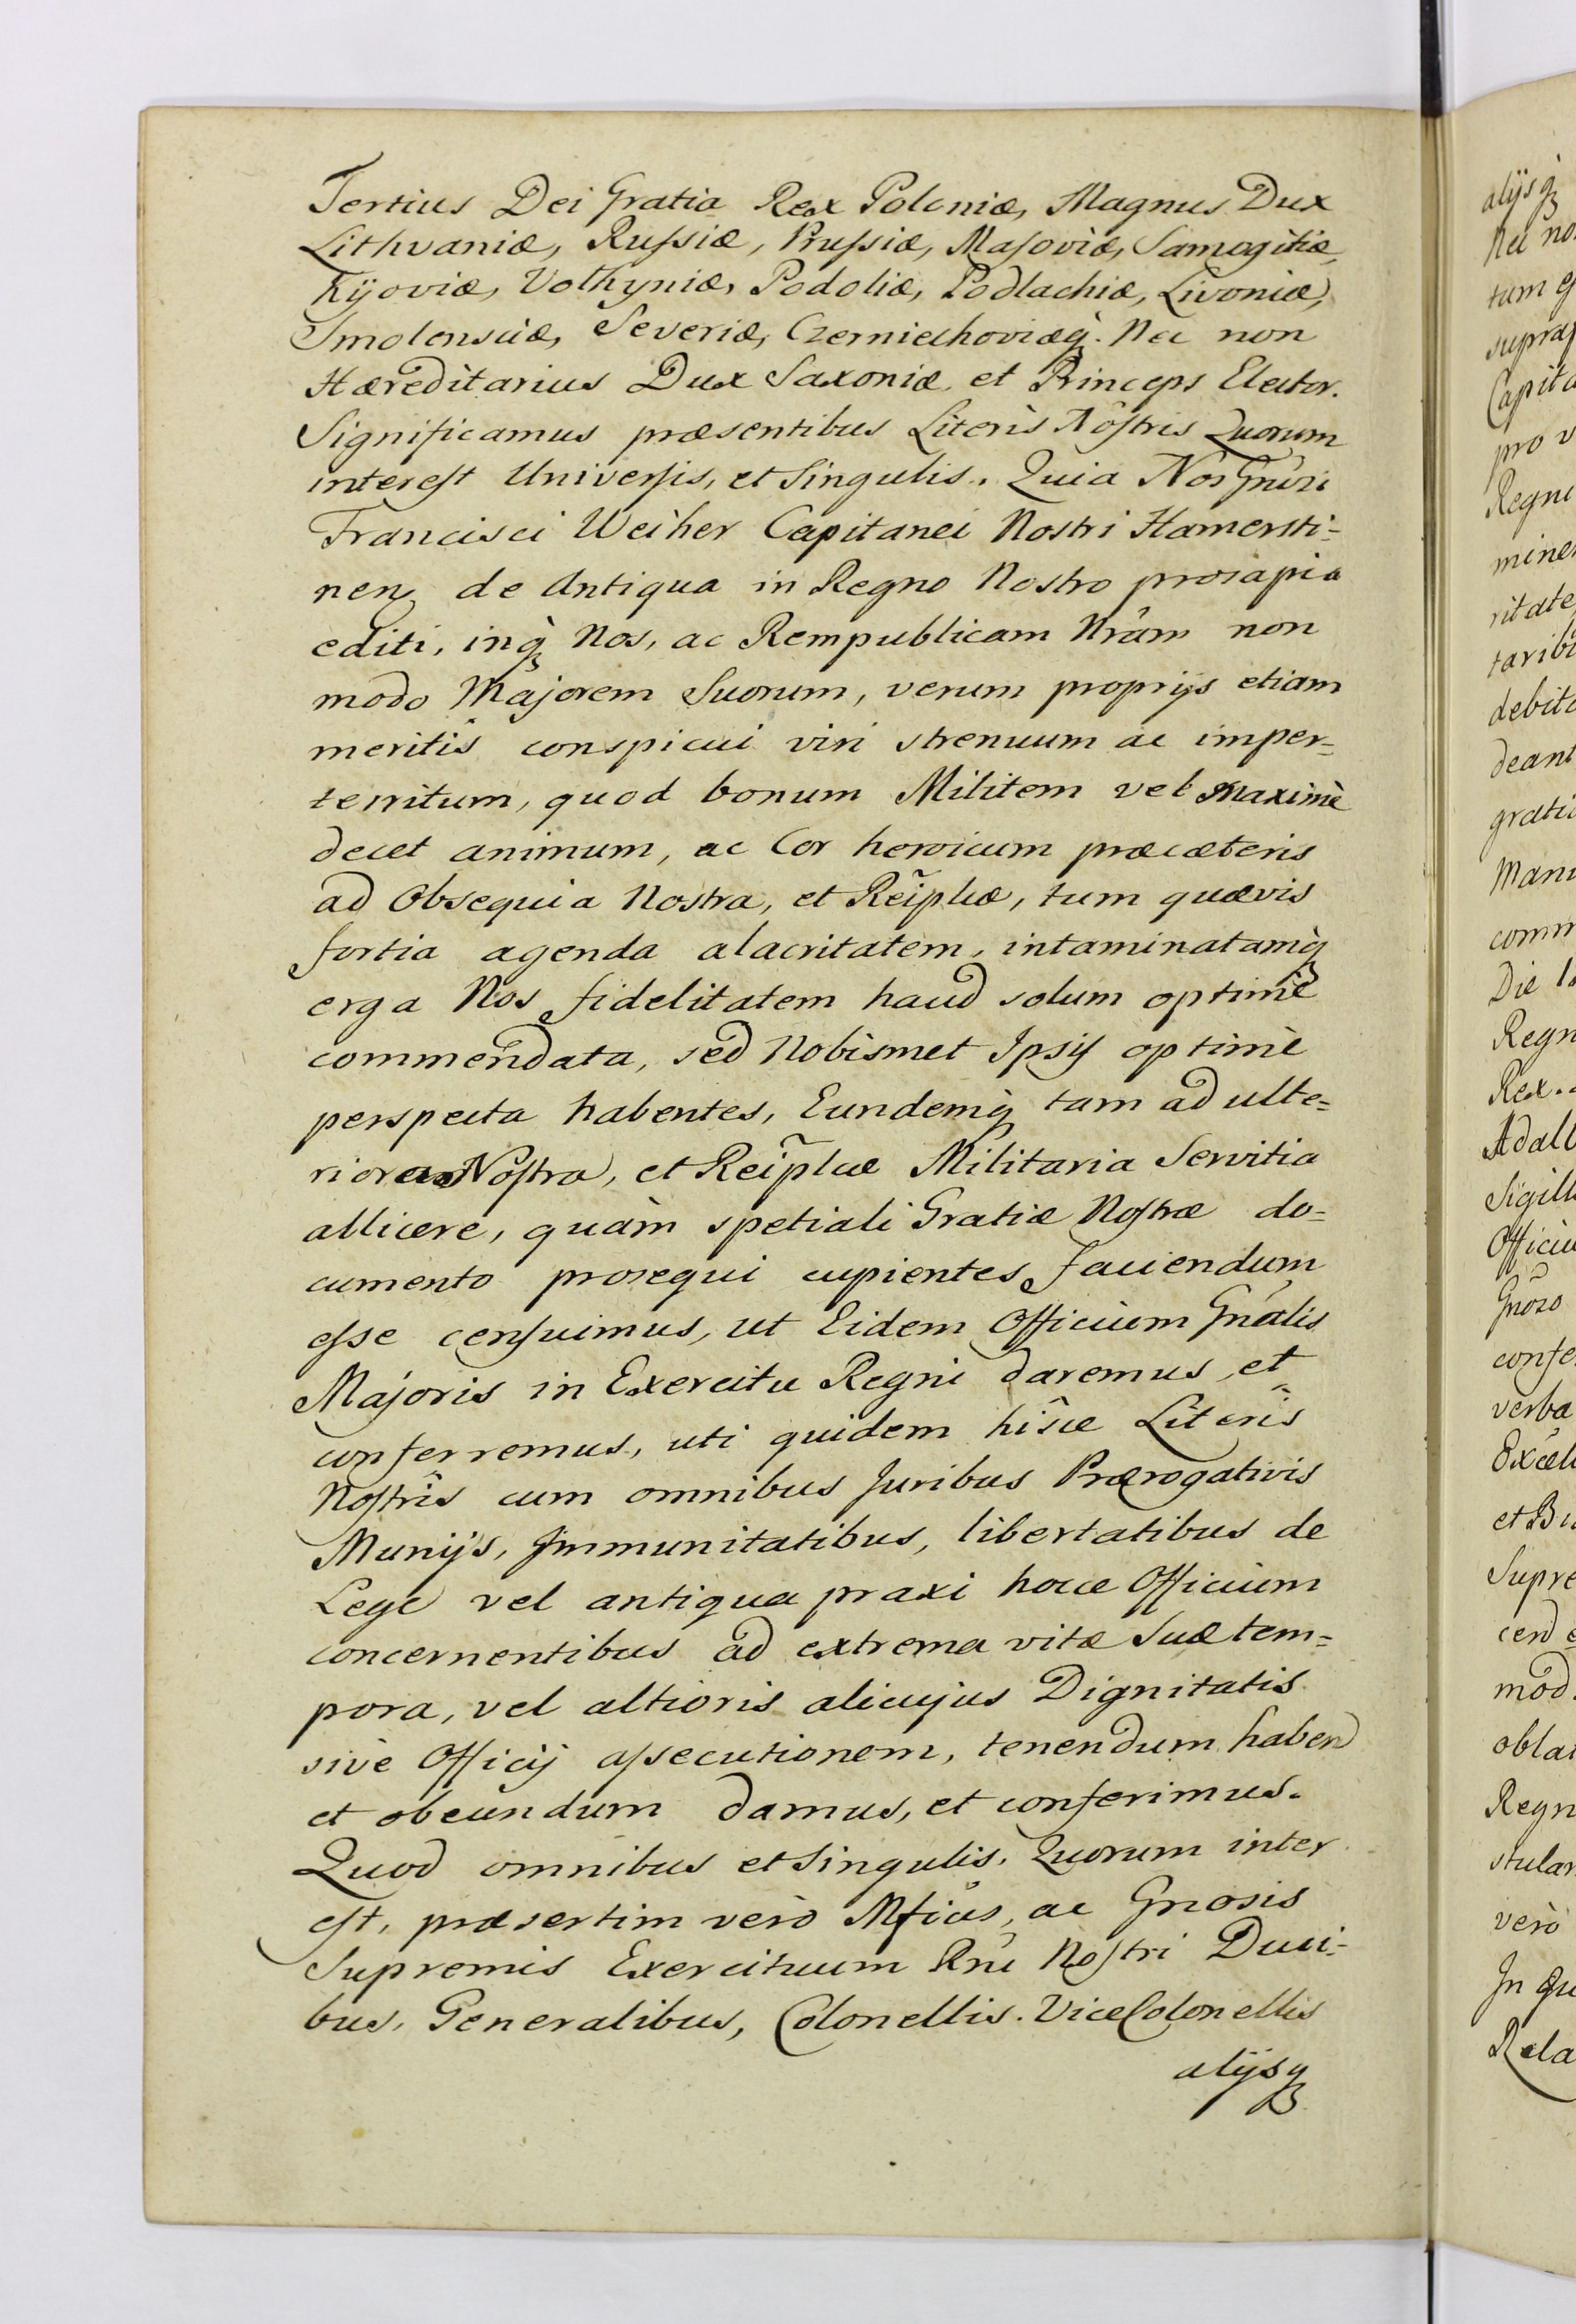 Tertius Dei Gratia Rex Poloniæ, Magnus Dux
Lithvaniæ, Rufsiæ, Prufsiæ, Masoviæ, Samogitiæ,
Kijoviæ, Volhyniæ, Podoliæ, Podlachiæ, Livoniæ,
Smolensciæ, Severiæ, Czerniechoviæq̀. Nec non
Hæreditarius Dux Saxoniæ et Princeps Elector.
Significamus præsentibus Literis Nostris Quorum
interest Universis, et Singulis. Quia Nos Gnŕsi
Francisci Weiher Capitanei Nostri Hamersti=
nen de Antiqua in Regno Nostro prosapia
editi, inq̀ Nos, ac Rempublicam Nrâm non
modo Majorem Suorum, verum proprijs etiam
meritis conspicui viri strenuum ac imper=
territum, quod bonum Militem vel maximè
decet animum, ac Cor heroicum præcæteris
ad Obsequia Nostra, et Reĩplcæ, tum quævis
fortia agenda alacritatem, intaminatamq̀
erga Nos fidelitatem haud solum optimè
commendata, sed Nobismet Ipsis optimè
perspecta habentes, Eundemq̀ tam ad ulte=
riora Nostra, et Reĩplcæ Militaria Servitia
allicere, quàm spetiali Gratiæ Nostræ do=
cumento prosequi cupientes, faciendum
efse censuimus, ut Eidem Officium Gnâlis
Majoris in Exercitu Regni daremus, et
conferremus, uti quidem hisce Literis
Nostris cum omnibus Juribus Prærogativis
Munijs, Immunitatibus, libertatibus de
Lege vel antiqua praxi hocce Officium
concernentibus ad extrema vitæ Suæ tem=
pora, vel altioris alicujus Dignitatis
sive Officij afsecutionem, tenendum haben
et obeundum damus, et conferimus.
Quod omnibus et Singulis, Quorum inter
est, præsertim verò Mficis, ac Gnosis
Supremis Exercituum Rni Nostri Duci=
bus, Generalibus, Colonellis. ViceColonellis
alijsq